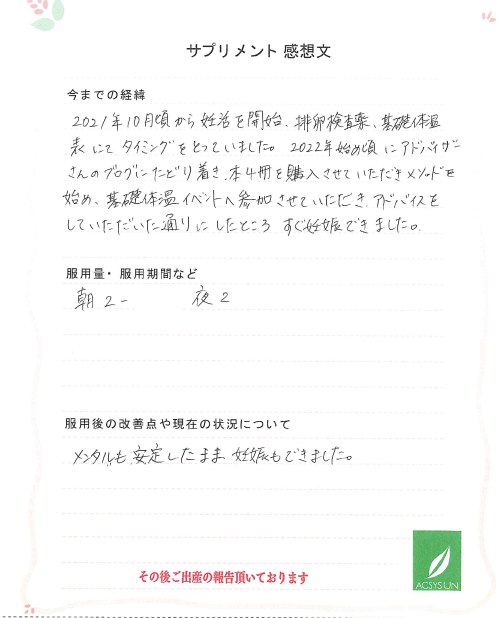 サプリメント 感想文
今までの経緯
2021年10月頃から妊活を開始、排卵検査薬、基礎体温
表にてタイミングをとっていました。2022年始め頃にアドバイザー
さんのブログにたどり着き、本4冊を購入させていただきメソッドを
始め、基礎体温イベントへ参加させていただき、アドバイスを
していただいた通りにしたところ すぐ妊娠できました。
服用量・服用期間など
朝 2 - 夜 2
服用後の改善点や現在の状況について
メンタルも 安定したまま 妊娠もできました。
その後ご出産の報告頂いております
ACSYSUN